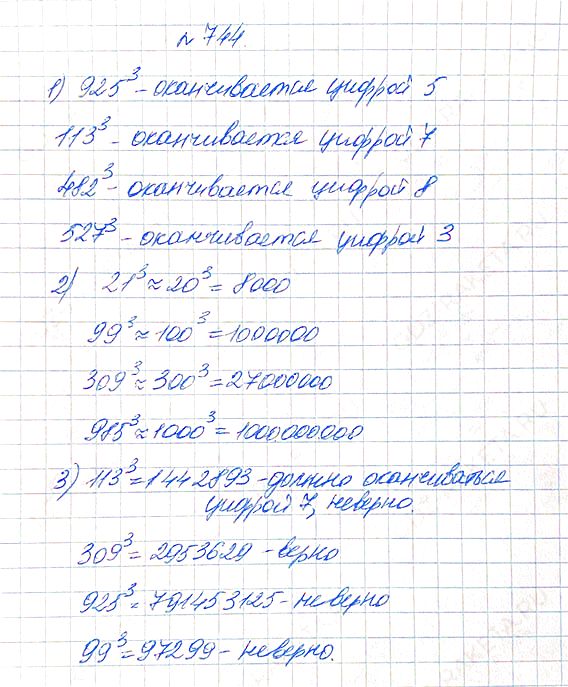 № 744.
1) 925³ - оканчивается цифрой 5
113³ - оканчивается цифрой 7
482³ - оканчивается цифрой 8
527³ - оканчивается цифрой 3
2) 21³ ≈ 20³ = 8000
99³ ≈ 100³ = 1000000
309³ ≈ 300³ = 27000000
985³ ≈ 1000³ = 1000.000.000
3) 113³ = 1442893 - должно оканчиваться
цифрой 7, неверно.
309³ = 2953629 - верно
925³ = 791453125 - неверно
99³ = 97299 - неверно.